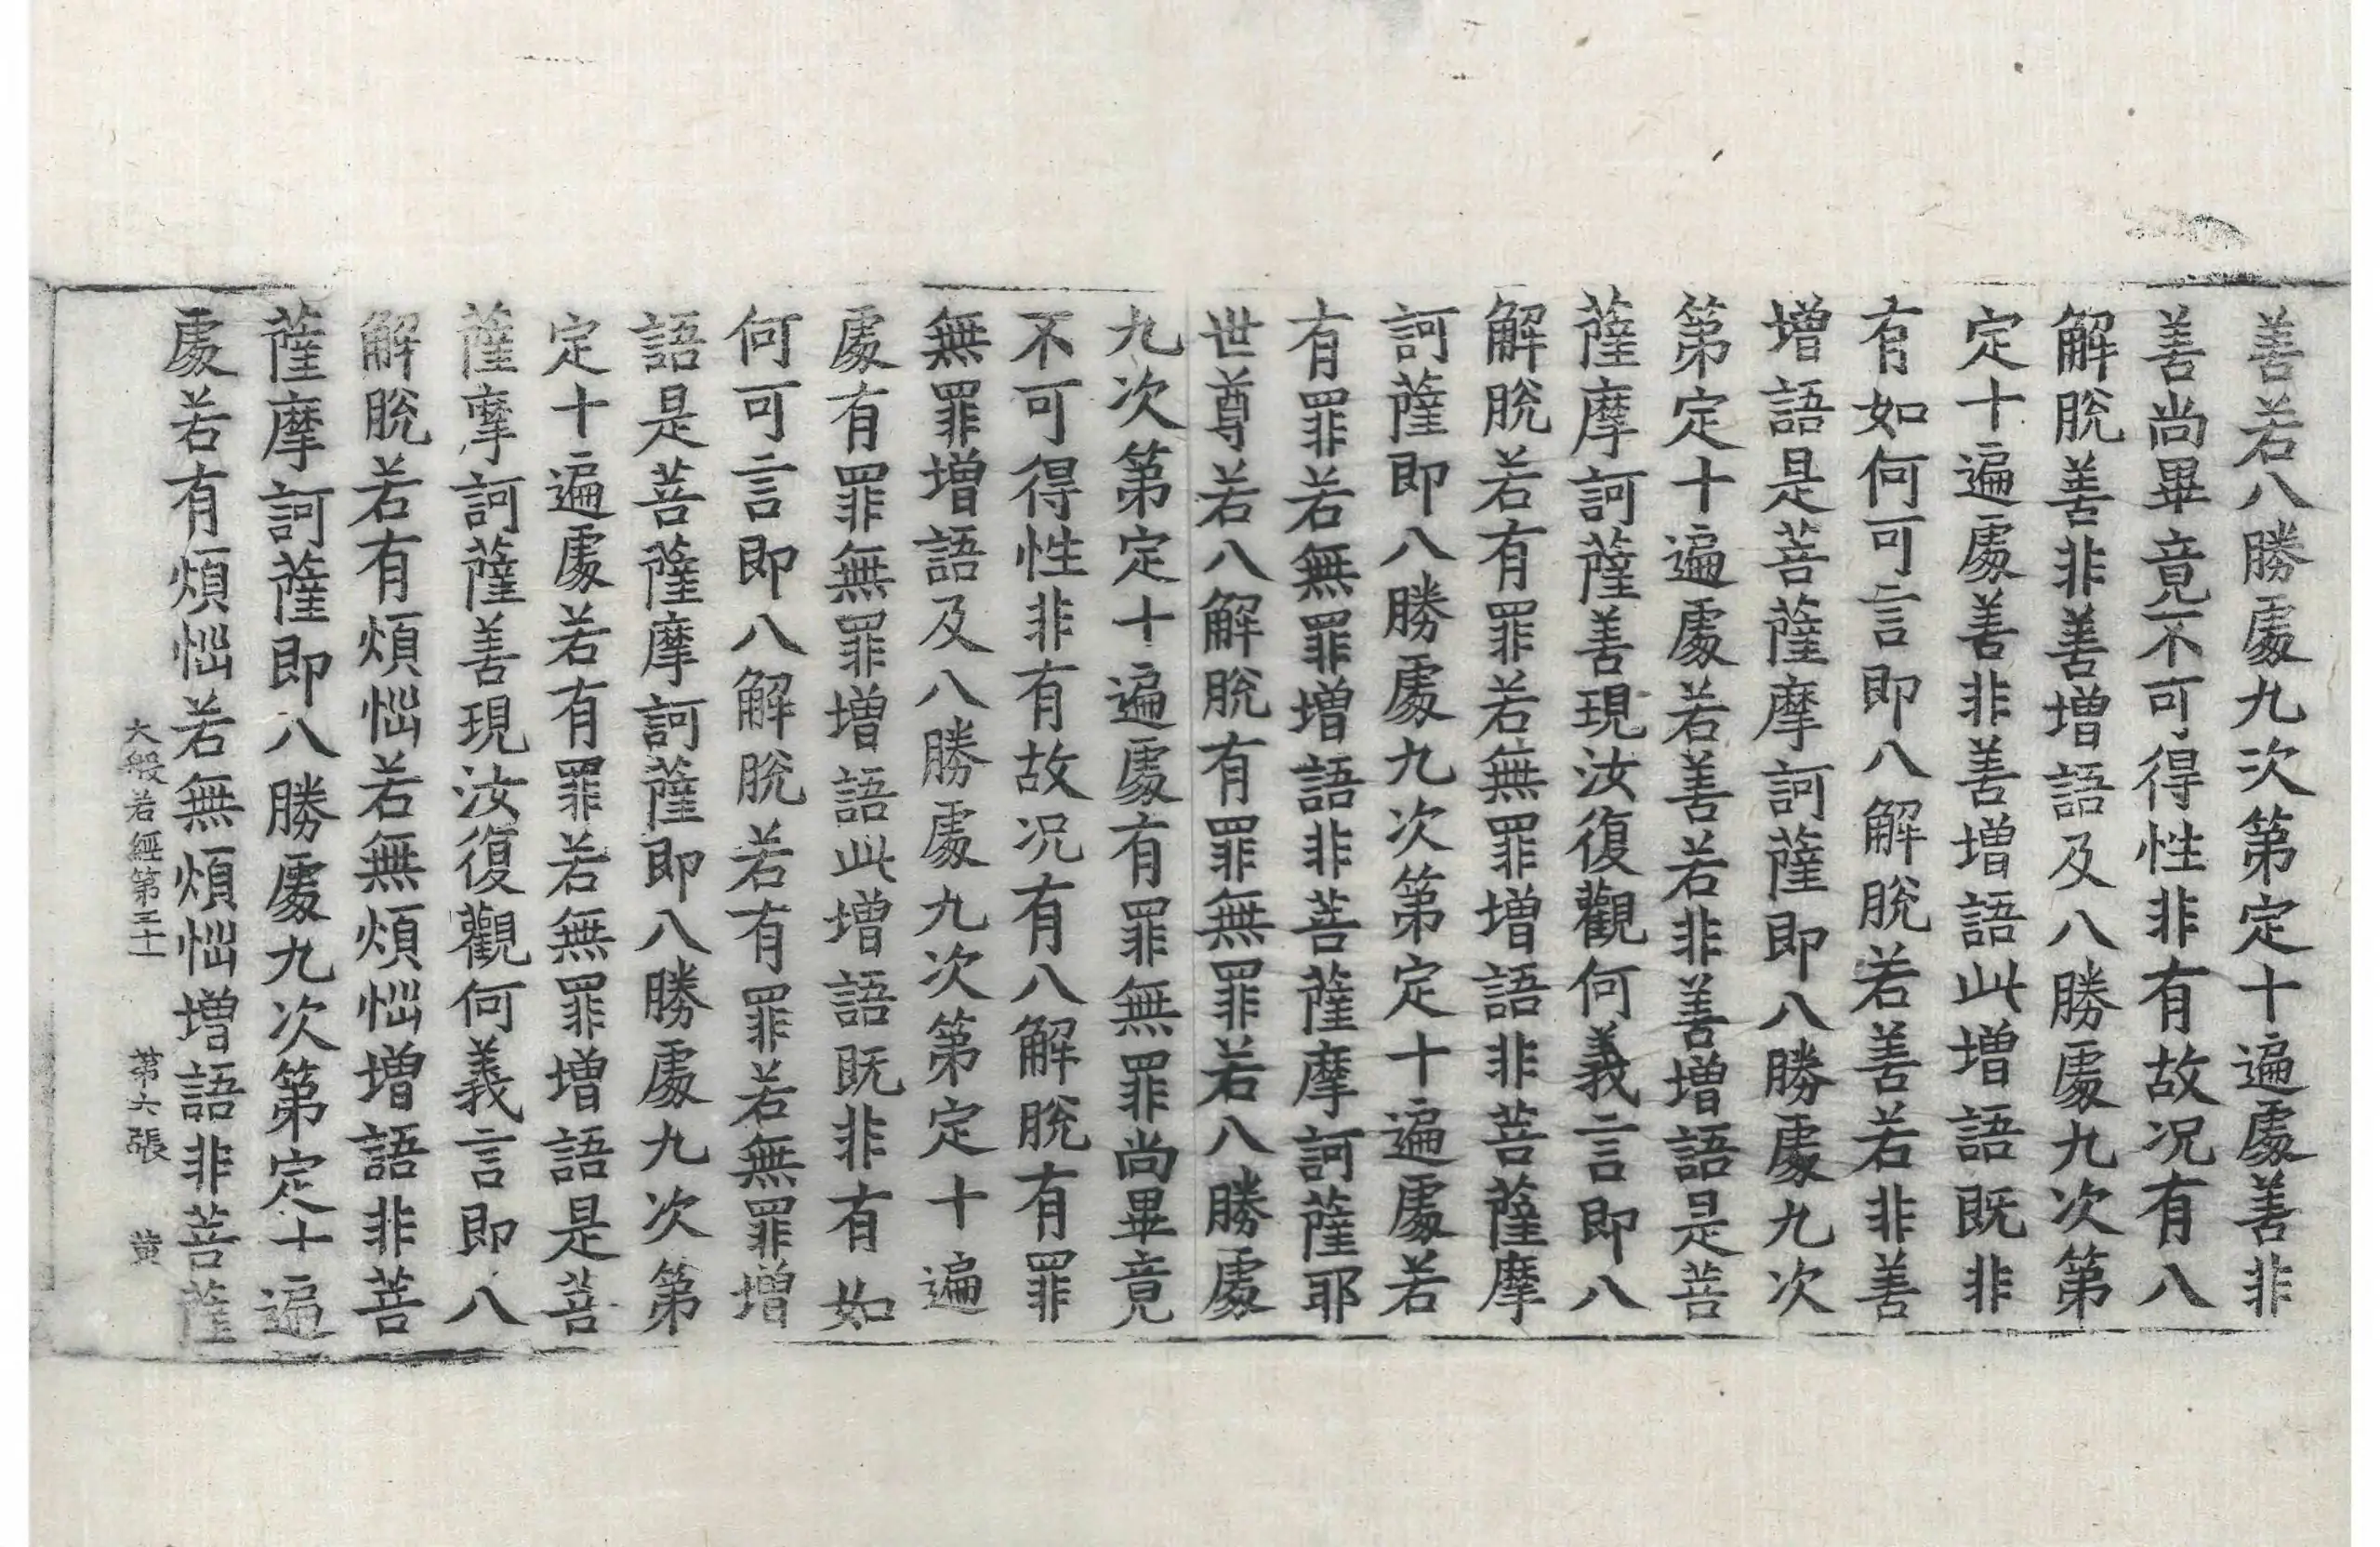 善若八勝處九次第定十遍處善非
善尚畢竟不可得性非有故况有八
解脫善非善增語及八勝處九次第
定十遍處善非善增語此增語既非
有如何可言即八解脫若善若非善
增語是菩薩摩訶薩即八勝處九次
第定十遍處若善若非善增語是菩
薩摩訶薩善現汝復觀何義言即八
解脫若有罪若無罪增語非菩薩摩
訶薩即八勝處九次第定十遍處若
有罪若無罪增語非菩薩摩訶薩耶
世尊若八解脫有罪無罪若八勝處
九次第定十遍處有罪無罪尚畢竟
不可得性非有故况有八解脫有罪
無罪增語及八勝處九次第定十遍
處有罪無罪增語此增語既非有如
何可言即八解脫若有罪若無罪增
語是菩薩摩訶薩即八勝處九次第
定十遍處若有罪若無罪增語是菩
薩摩訶薩善現汝復觀何義言即八
解脫若有煩惱若無煩惱增語非菩
薩摩訶薩即八勝處九次第定十遍
處若有煩惱若無煩惱增語非菩薩
大般若經第三十一 第六張 黃